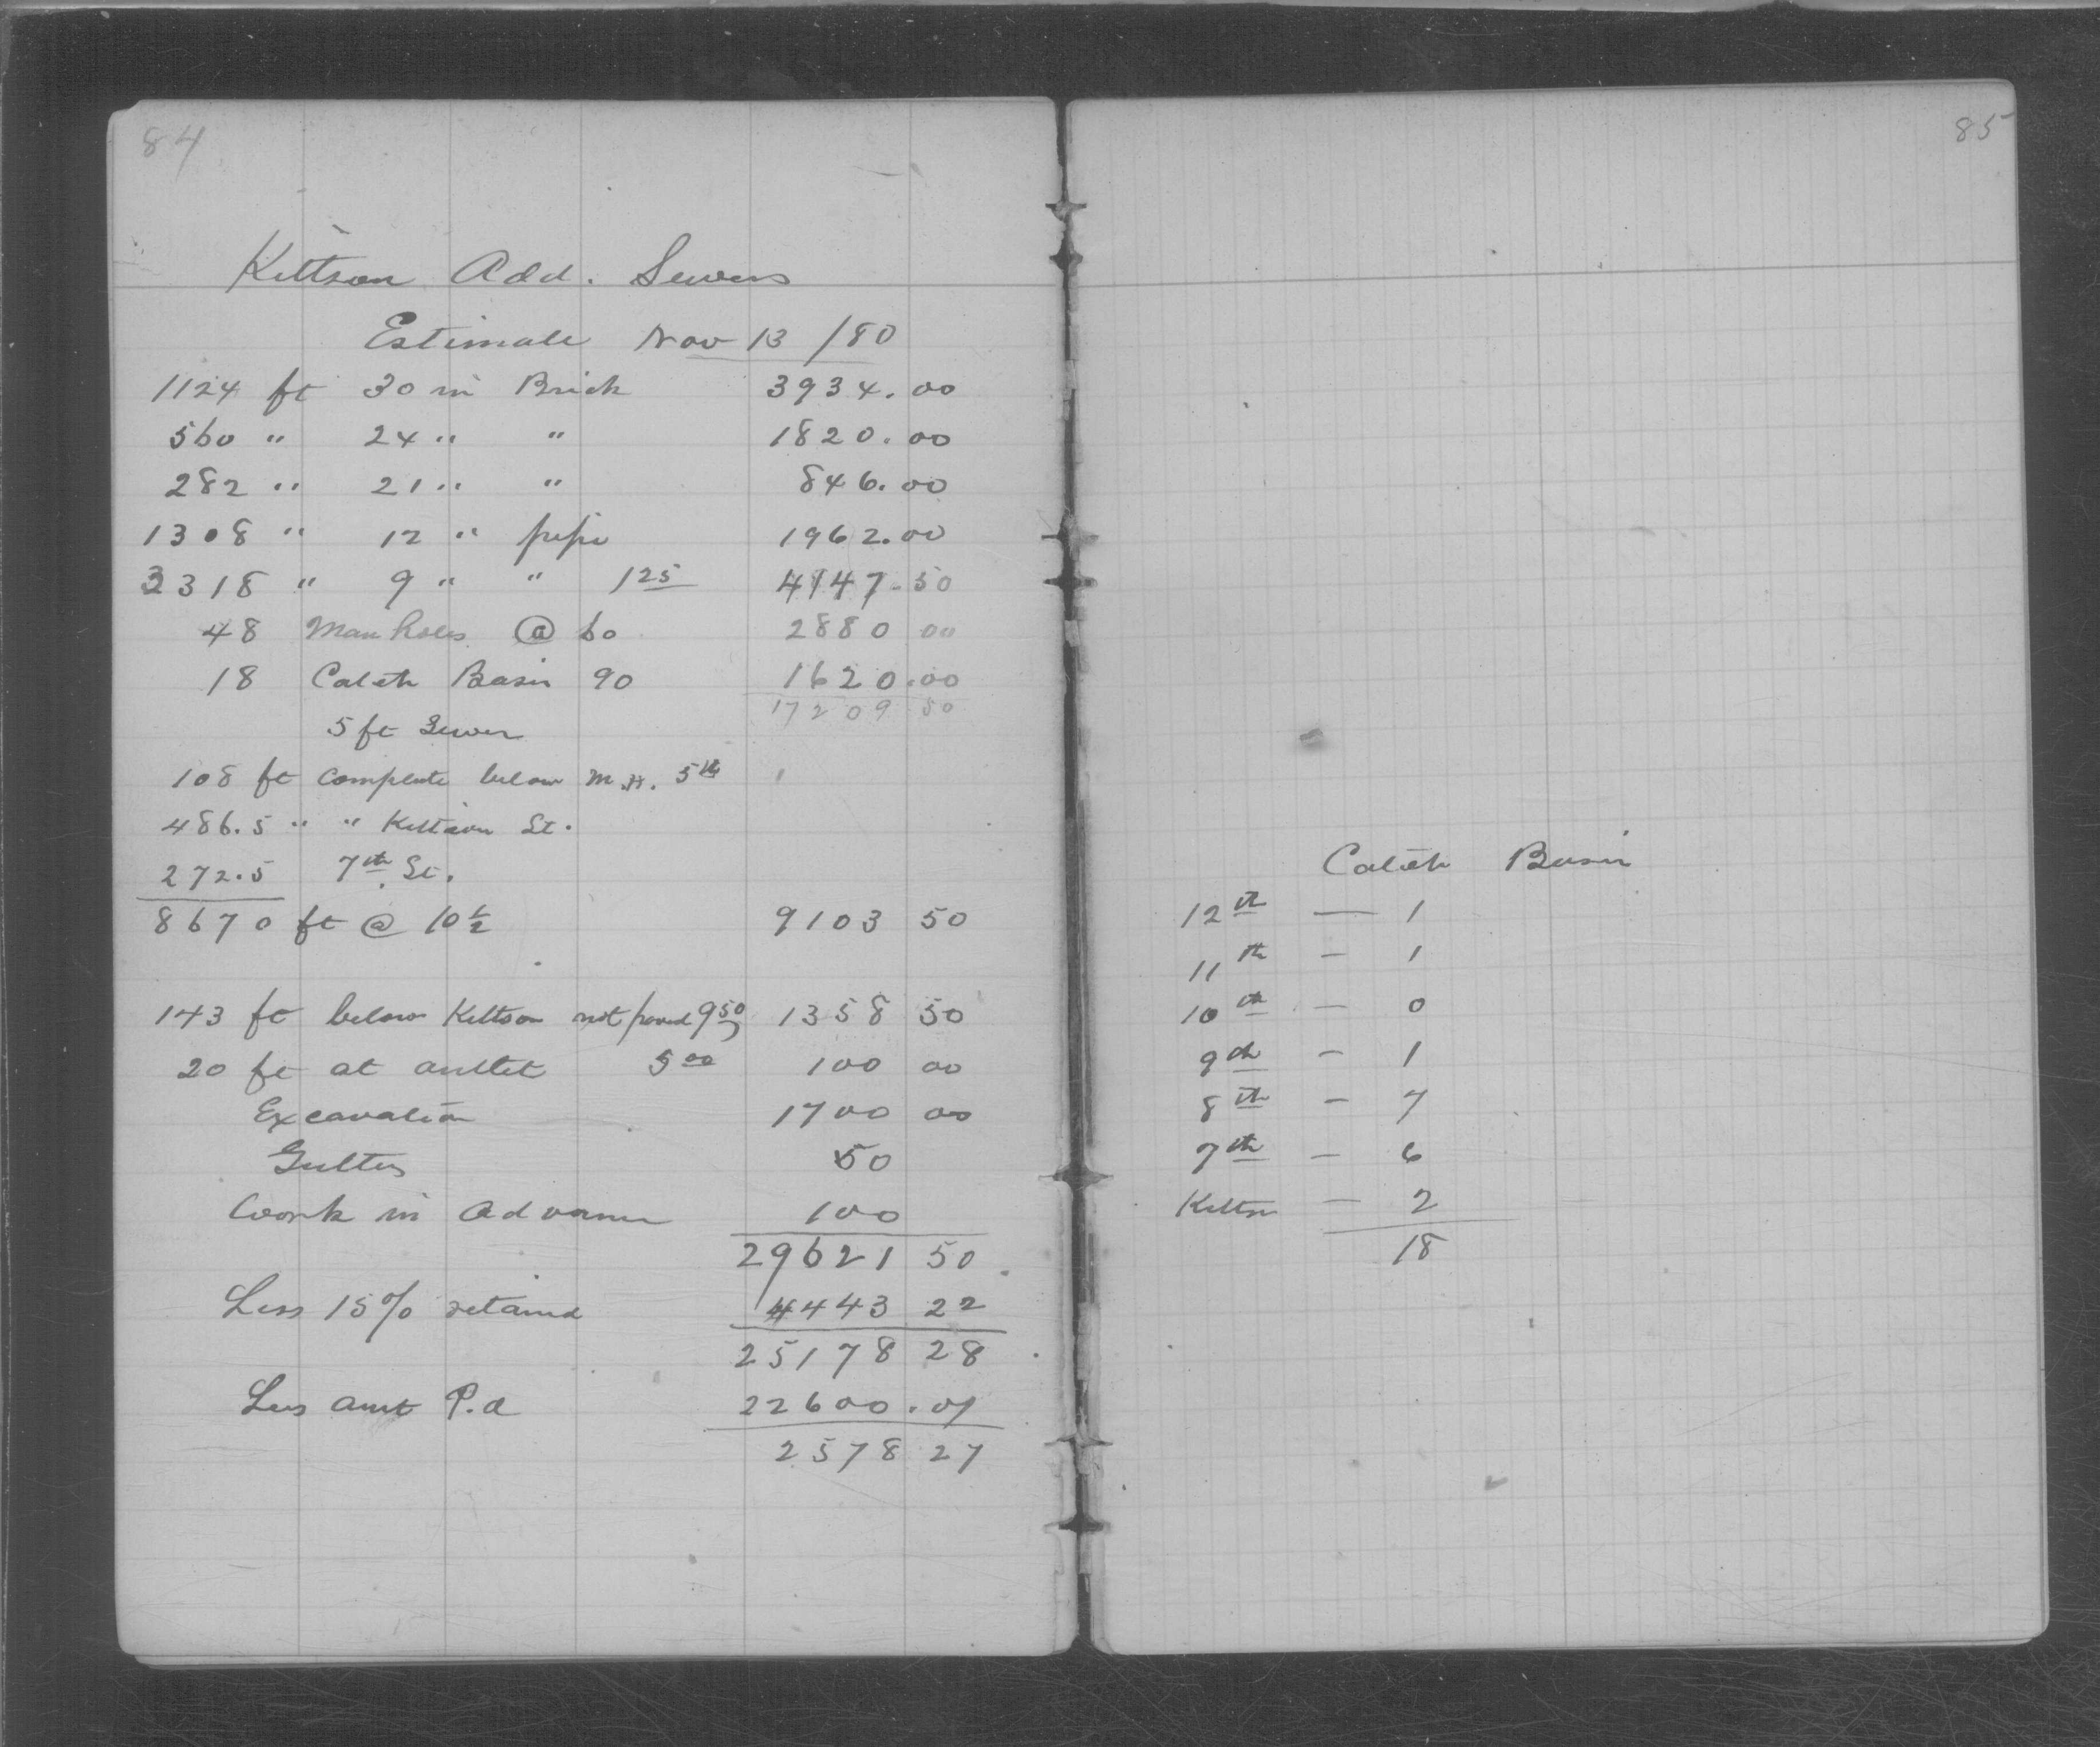 84
Kittson Add. Sewers
Estimate Nov 13 /80
1124 ft 30 in Brick 3934.00
560 " 24 " " 1820.00
282 " 21 " " 846.00
1308 " 12 " pipe 1962.00
3318 " 9 " " 125 4147.50
48 Man holes @ 60 2880 00
18 Catch Basin 90 1620.00
17209 50
5 ft Sewer
108 ft complete below M.H. 5th
486.5 " " Kittson St.
272.5 7th St.
8670 ft @ 10 1/2 9103 50
143 ft below Kittson not paved 9 50 1358 50
20 ft at outlet 5 00 100 00
Excavation 1700 00
Gutters 50
Work in Advance 100
29621 50
Less 15% retained 4443 22
25178 28
Less amt P.d 22600.01
2578 27
85
Catch Basin
12th — 1
11th — 1
10th — 0
9th — 1
8th — 7
7th — 6
Kittson — 2
18